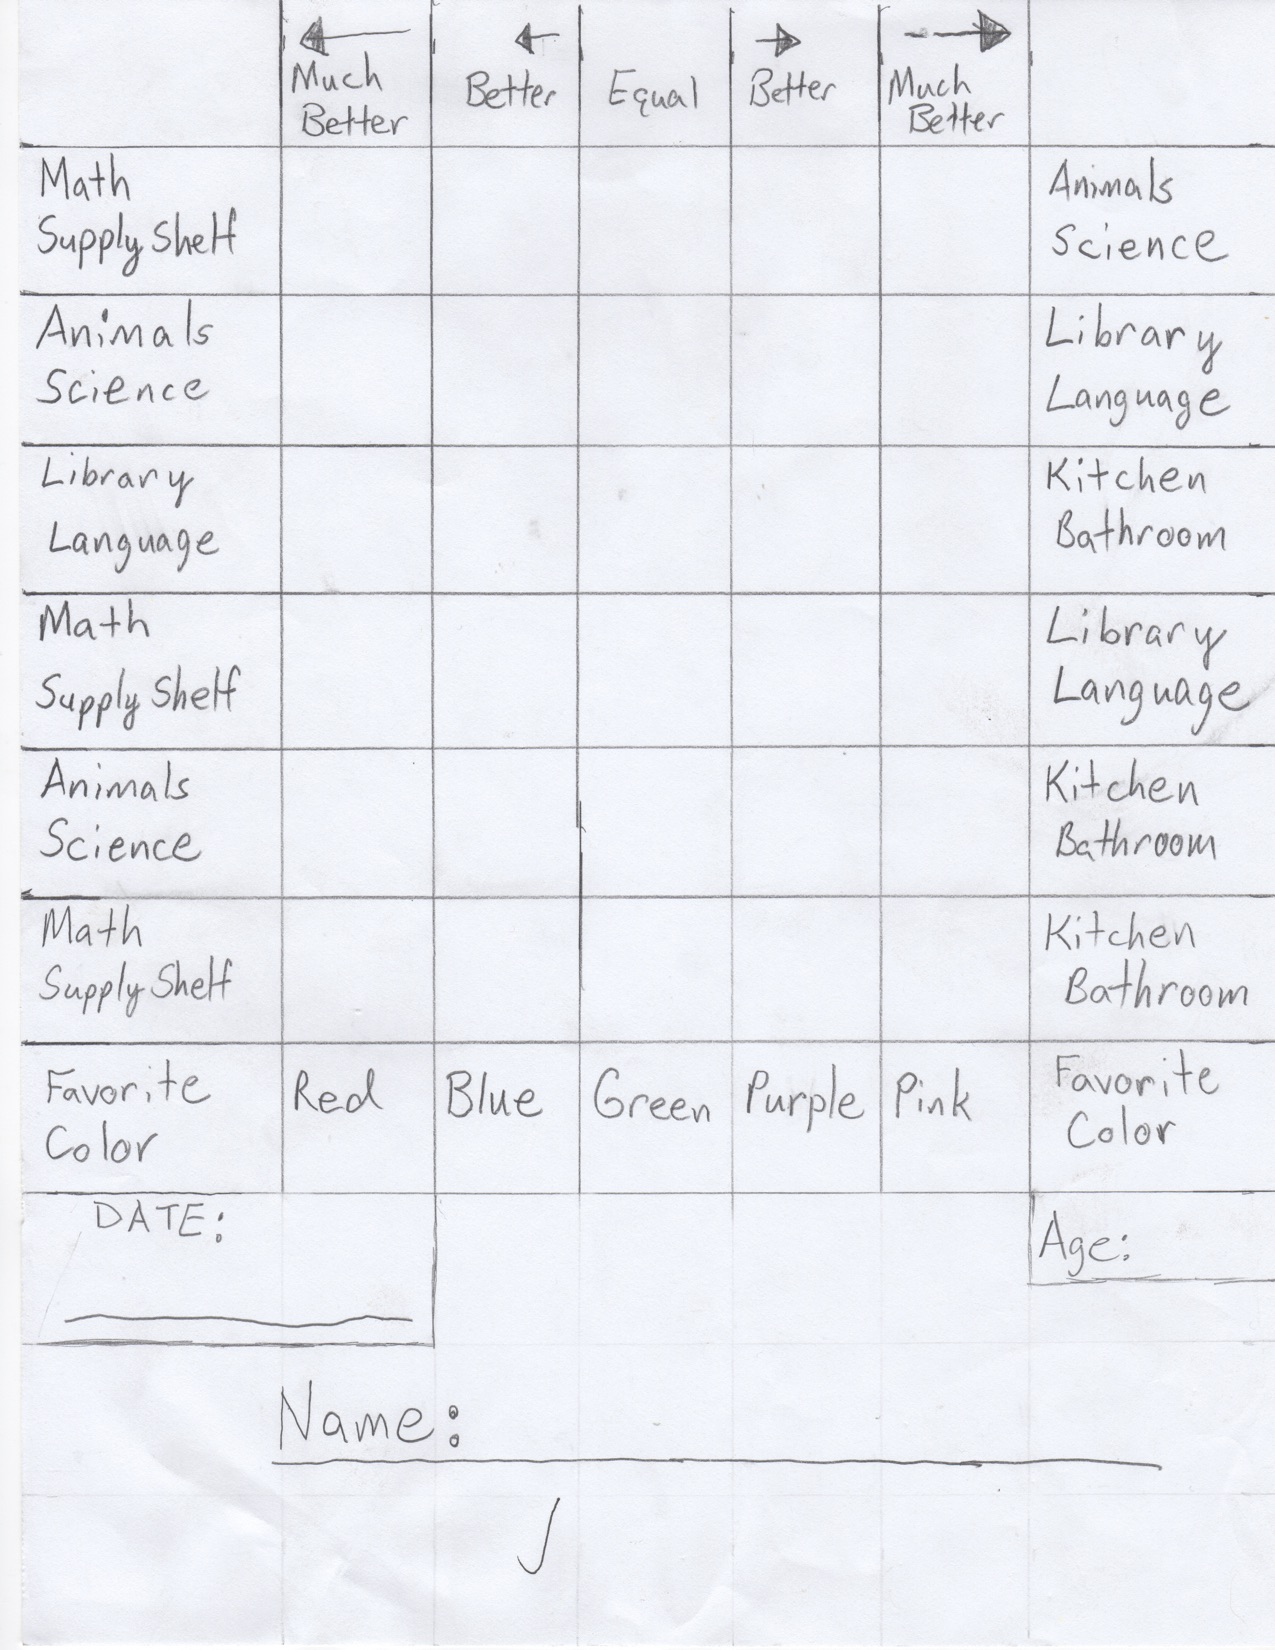 Much Better
Better
Equal
Better
Much Better
Math
Supply Shelf
Animals
Science
Animals
Science
Library
Language
Library
Language
Kitchen
Bathroom
Math
Supply Shelf
Library
Language
Animals
Science
Kitchen
Bathroom
Math
Supply Shelf
Kitchen
Bathroom
Favorite
Color
Red
Blue
Green
Purple
Pink
Favorite
Color
DATE:
Age:
Name: